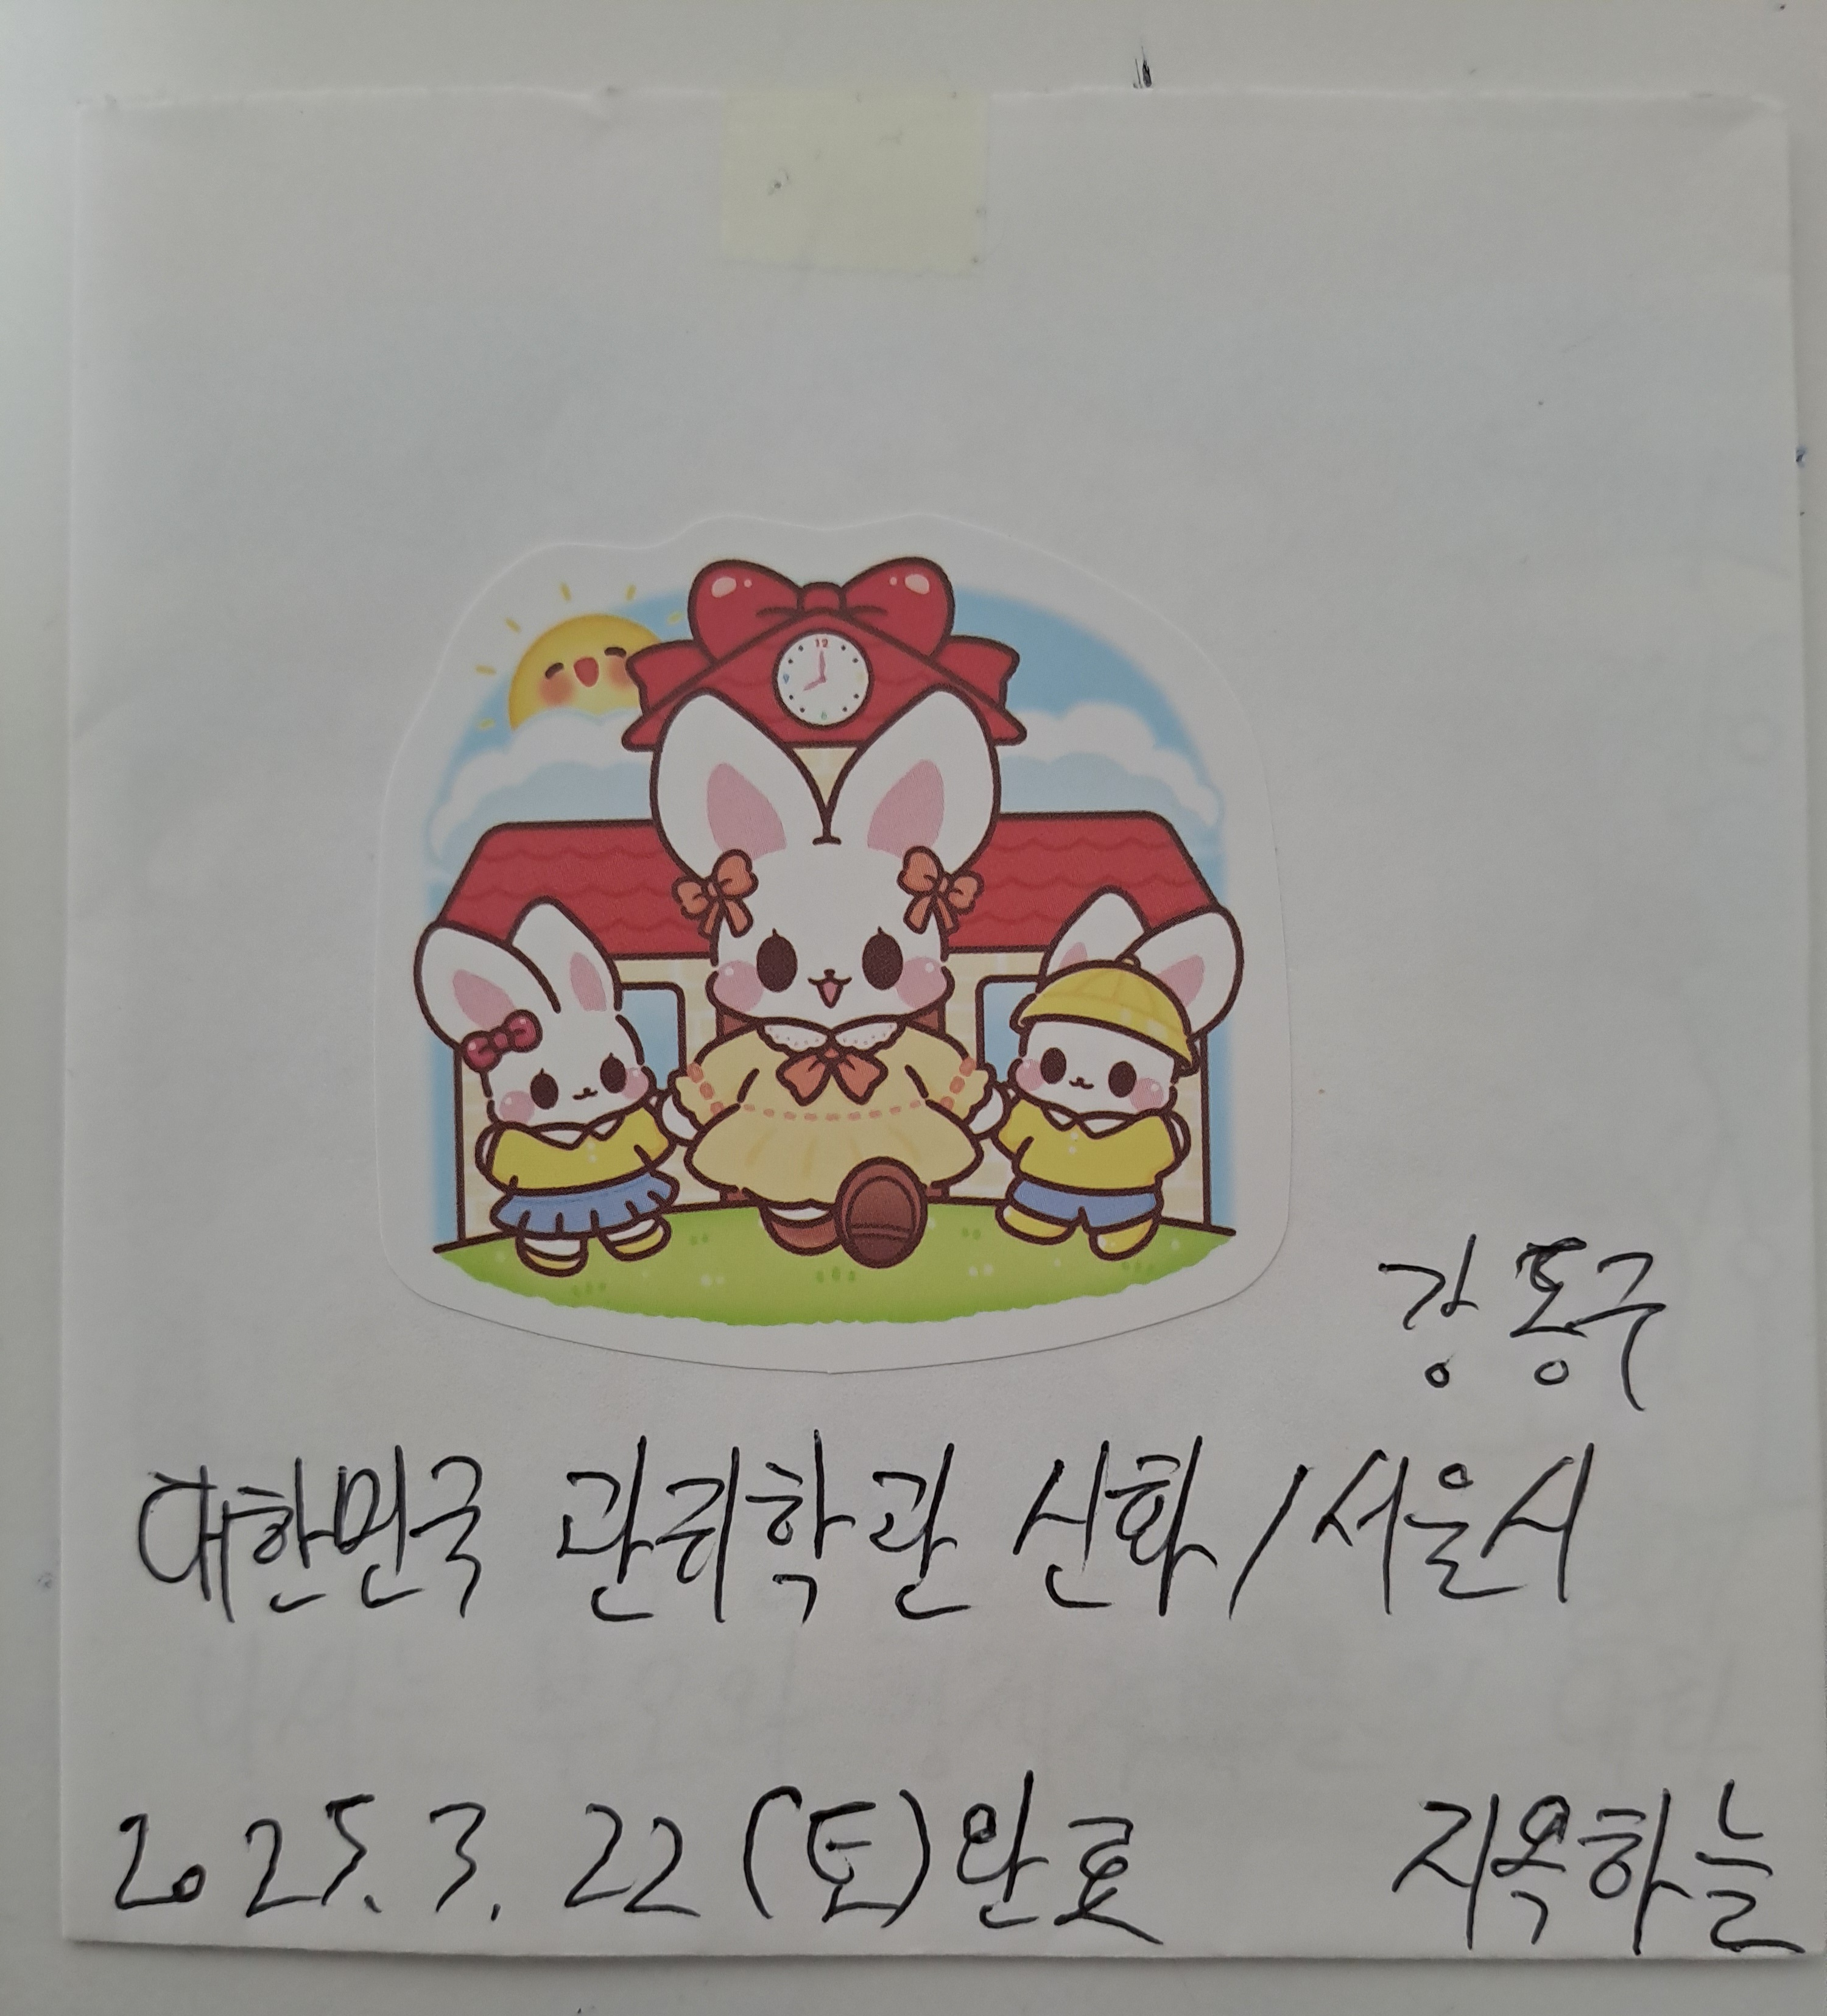 12
9
6
강동구
대한민국 관리학관 신화/서울시
2025.3.22(토)완료 지옥하늘